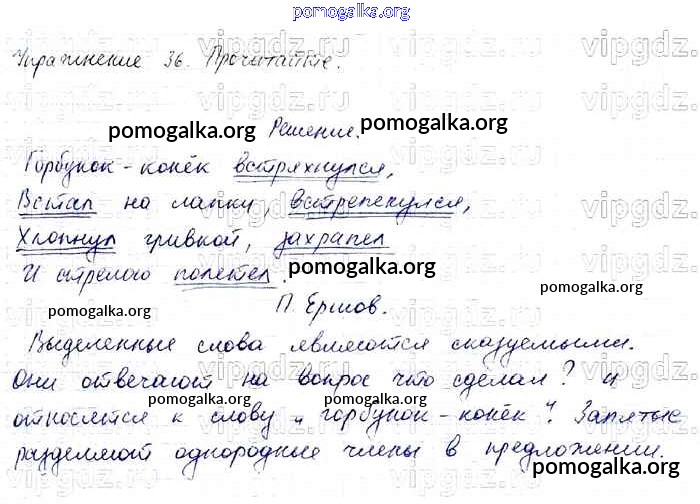 pomogalka.org
Упражнение 36. Прочитайте.
Решение.
Горбунок-конёк встряхнулся,
Встал на лапки, встрепенулся,
Хлопнул гривкой, захрапел
И стрелою полетел.
П. Ершов.
Выделенные слова являются сказуемыми.
Они отвечают на вопрос что сделал? и
относятся к слову „горбунок-конёк". Запятые
разделяют однородные члены в предложении.
pomogalka.org
pomogalka.org
pomogalka.org
pomogalka.org
pomogalka.org
pomogalka.org
pomogalka.org
vipgdz.ru